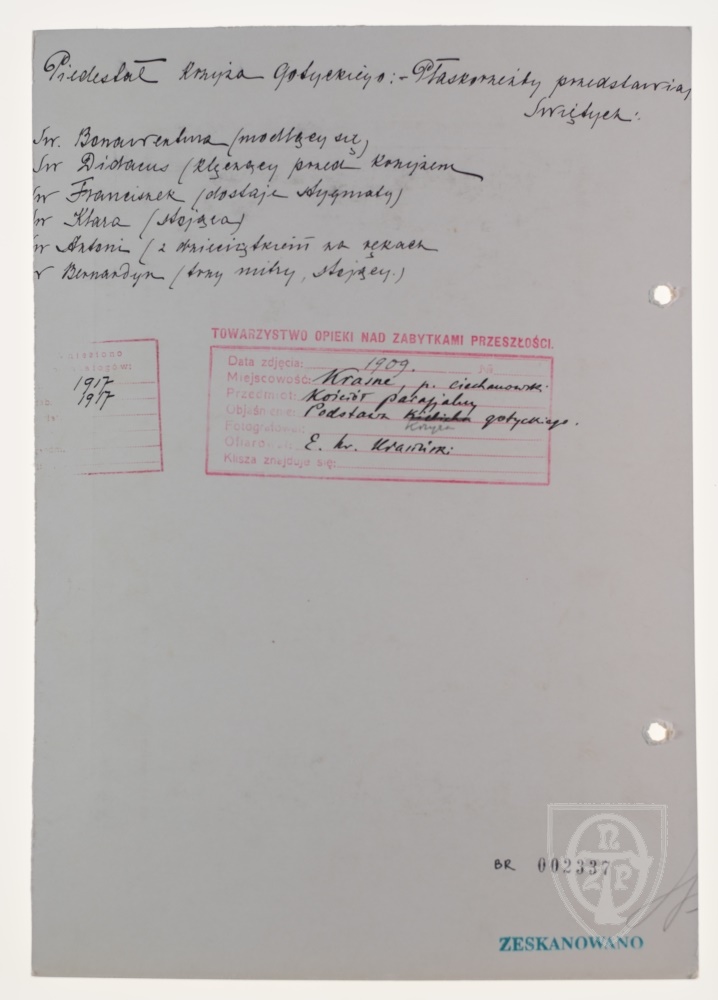 Piedestał krzyża Gotyckiego:- Płaskorzeźby przedstawiaj
Świętych:
Św. Bonawentura (modlący się)
Św Didacus (klęczący przed krzyżem
w Franciszek (dostaje stygmaty)
w Klara (stojąca)
w Antoni (z dzieciątkiem na rękach
w Bernardyn (trzy mitry, stojący.)
TOWARZYSTWO OPIEKI NAD ZABYTKAMI PRZESZŁOŚCI.
Data zdjęcia: 1909. №
Miejscowość: Krasne, p. ciechanowski
Przedmiot: Kościół parafjalny
Objaśnienie: Podstawa kielicha gotyckiego.
Fotografował: Krzyża
Ofiarował: E. hr. Krasiński
Klisza znajduje się:
1917
1917
BR 002337
NZP
ZESKANOWANO